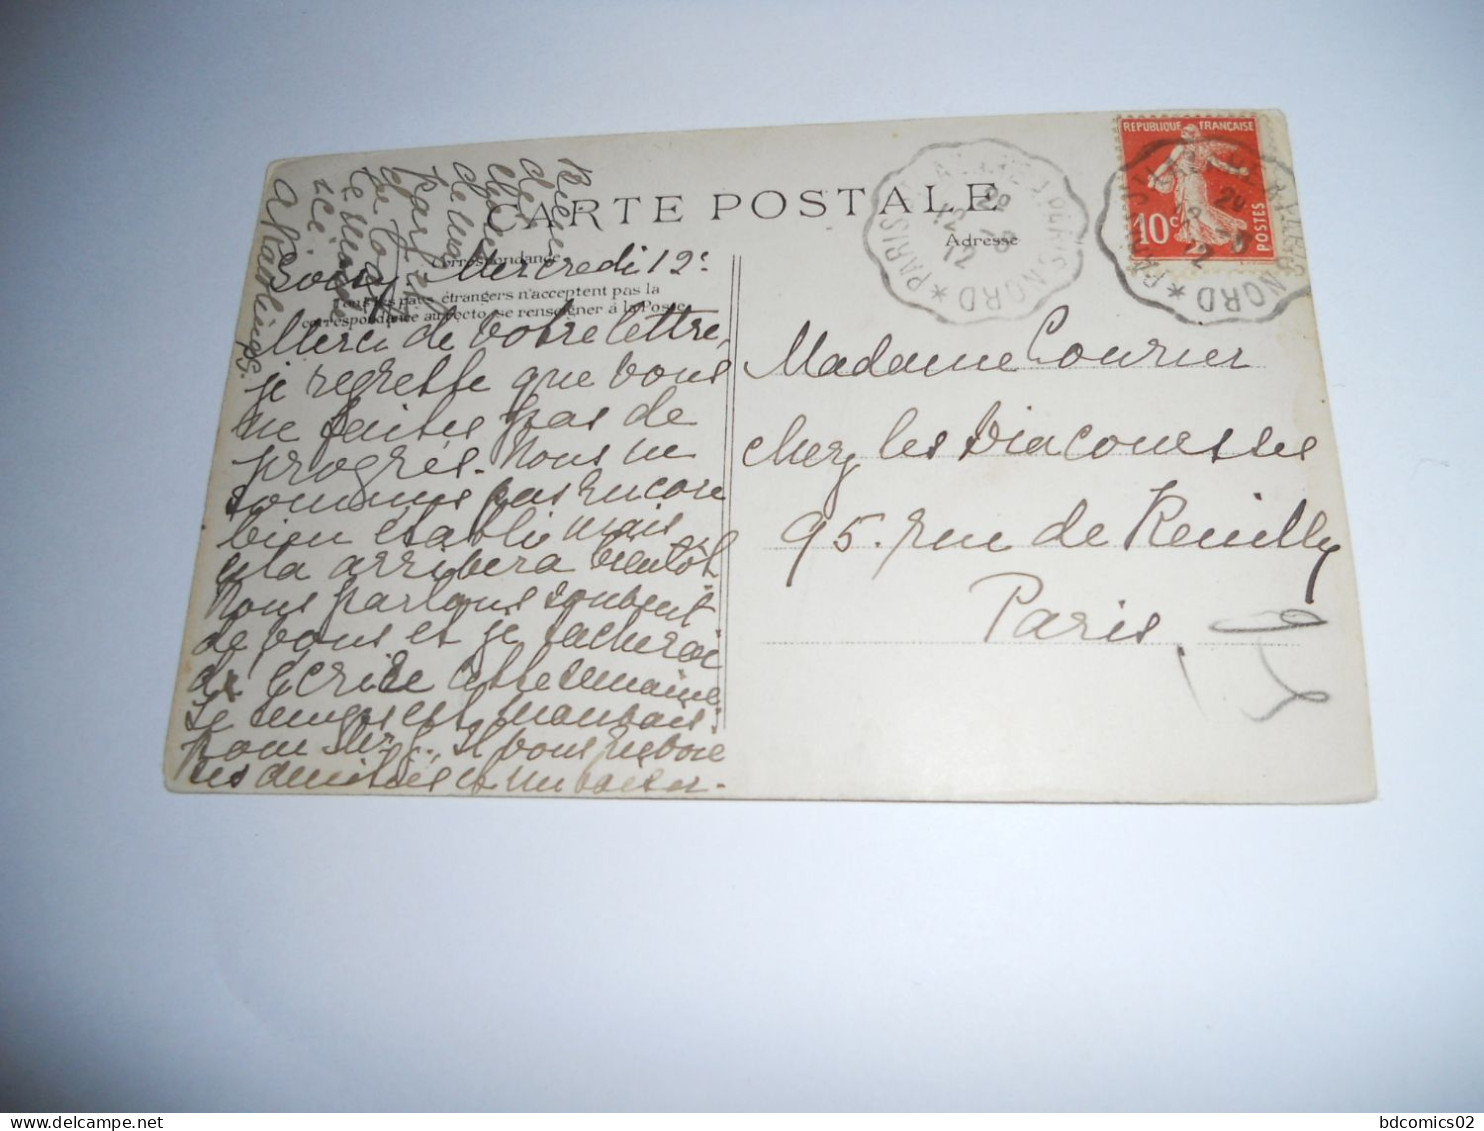 CARTE POSTALE
Correspondance
Tous les pays étrangers n'acceptent pas la
correspondance au recto, se renseigner à la Poste
Adresse
RÉPUBLIQUE FRANÇAISE
10c
POSTES
PARIS NORD
PARIS NORD
Soisy Mercredi 12
Merci de votre lettre,
je regrette que vous
ne faites pas de
progrès. Nous ne
sommes pas encore
bien établie mais
cela arrivera bientôt
Nous parlons souvent
de vous et je tacherai
de écrire cette semaine
Le temps est mauvais
pour Mr C. Il vous envoie
ses amitiés et un baiser.
Madame Courier
chez les Diaconesses
95. rue de Reuilly
Paris
bdcomics02